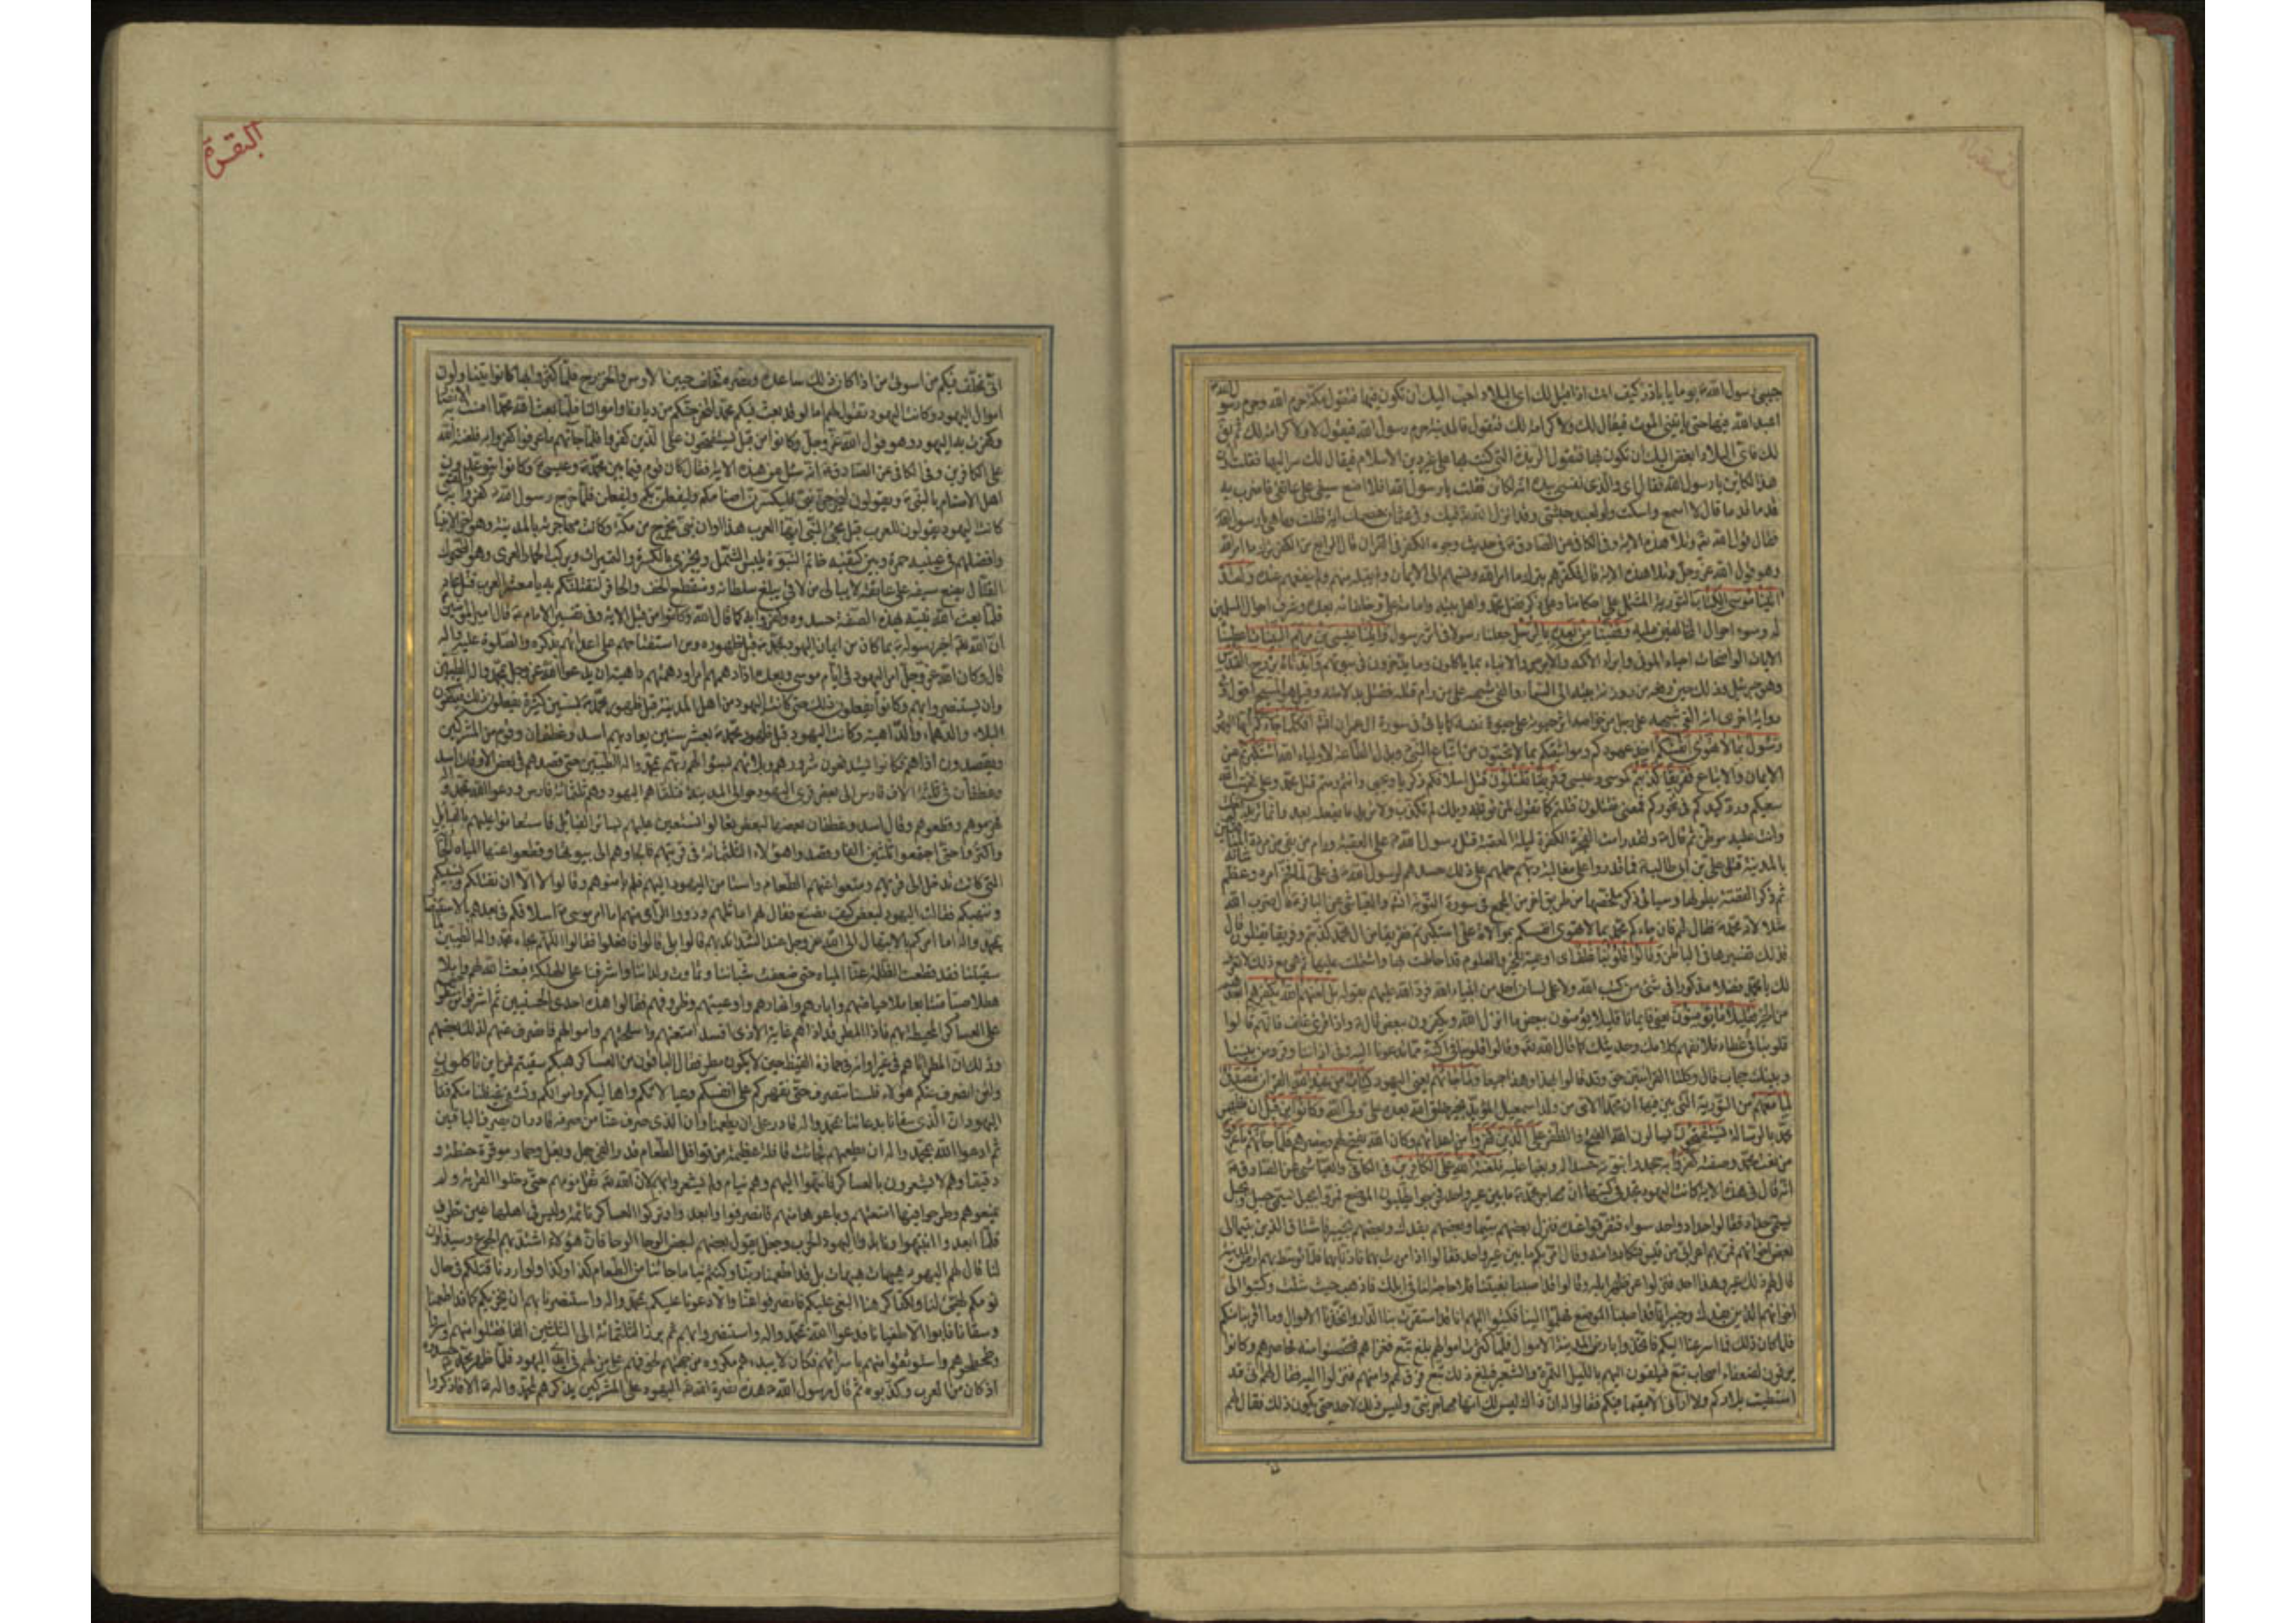 حبيبي رسول الله ص يوما يا باذر كيف انت اذا قيل لك اي البلاد احب اليك ان تكون فيها فتقول مكة حرم الله وحرم رسول الله
اعبد الله فيها حتى يأتيني الموت فيقال لك ولا كرامة لك فتقول فالمدينة حرم رسول الله فيقول لا ولا كرامة لك ثم يقال
لك فاي البلاد ابغض اليك ان تكون بها فتقول الربذة التي كنت بها على غير دين الاسلام فيقال لك سر اليها فقلت
هذا لكائن يا رسول الله فقال اي والذي نفسي بيده انه لكائن فقلت يا رسول الله افلا اضع سيفي على عاتقي فاضرب به
قدما قدما قال لا اسمع واسكت ولو لعبد حبشي وقد انزل الله فيك وفي عثمان خصمك اية فقلت وما هي يا رسول الله
فقال قول الله تع وتلا هذه الاية وفي الكافي عن الصادق ع في حديث وجوه الكفر في القران قال الرابع من الكفر ترك ما امر الله
وهو قول الله عز وجل وتلا هذه الاية قال فكفرهم بترك ما امر الله ونسبهم الى الايمان ولم يقبله منهم ولم ينفعهم عنده ولقد
اتينا موسى الكتاب التورية المشتمل على احكامنا وعلى ذكر فضل محمد واهل بيته وامامة علي وخلفائه بعده وشرف احوال المسلمين
له وسوء احوال المخالفين عليه وقفينا من بعده بالرسل جعلنا رسولا في اثر رسول واتينا عيسى بن مريم البينات اعطيناه
الايات الواضحات احياء الموتى وابراء الاكمه والابرص والانباء بما ياكلون وما يدخرون في بيوتهم وايدناه بروح القدس
وهو جبرئيل وذلك حين رفعه من روزنة بيته الى السماء والقي شبهه على من رام قتله فقتل بدلا منه وقيل هو المسيح اقول
رواية اخرى انه القي شبهه على رجل من خواصه اثر حيوته على حيوة نفسه كما ياتي في سورة ال عمران انشاء الله افكلما جاءكم ايها اليهود
رسول بما لا تهوى انفسكم اخذ عهودكم ومواثيقكم بما لا تحبون من اتباع النبي وبذل الطاعة لاولياء الله استكبرتم عن
الايمان والاتباع ففريقا كذبتم كموسى وعيسى وفريقا تقتلون قتل اسلافكم زكريا ويحيى وانتم رمتم قتل محمد وعلي فخيب الله
سعيكم ورد كيدكم في نحوركم فمعنى تقتلون قتلتم كما تقول لمن توبخه ويلك لم تكذب ولا تريد ما يفعله بعد وانما تريد لم فعلت
وانت عليه موطن ثم قال ع ولقد رامت الفجرة الكفرة ليلة العقبة قتل رسول الله ص على العقبة ورام من بقي من مردة المنافقين
بالمدينة قتل علي بن ابي طالب ع فما قدروا على مغالبة ربهم حملهم على ذلك حسدهم لرسول الله ص في علي لما فخم امره وعظم شانه
ثم ذكر القصة بطولها وسياتي ذكر ملخصها من طريق اخر من المجمع في سورة التوبة انشاء الله والعياشي عن الباقر ع قال ضرب الله
مثلا لامة محمد ص فقال لهم فان جاءكم محمد بما لا تهوى انفسكم بموالاة علي استكبرتم ففريقا من ال محمد كذبتم وفريقا تقتلون قال
فذلك تفسيرها في الباطن وقالوا قلوبنا غلف اي اوعية للخير والعلوم قد احاطت بها واشتملت عليها ثم هي مع ذلك لا تعرف
لك يا محمد فضلا مذكورا في شيء من كتب الله ولا على لسان احد من انبياء الله فرد الله عليهم بقوله بل لعنهم الله بكفرهم ابعدهم
من الخير فقليلا ما يؤمنون يعني فايمانا قليلا يؤمنون ببعض ما انزل الله ويكفرون ببعض قال ع واذا قرئ غلف فانهم قالوا
قلوبنا في غطاء فلا نفهم كلامك وحديثك كما قال الله تع وقالوا قلوبنا في اكنة مما تدعونا اليه وفي اذاننا وقر ومن بيننا
وبينك حجاب قال وكلتا القرائتين حق وقد قالوا بهذا وهذا جميعا ولما جائهم يعني اليهود كتاب من عند الله القران مصدق
لما معهم من التورية التي بين فيها ان محمدا الامي من ولد اسمعيل المؤيد بخير خلق الله بعده علي ولي الله وكانوا من قبل ان ظهر
محمد بالرسالة يستفتحون يسالون الله الفتح والظفر على الذين كفروا من اعدائهم وكان الله يفتح لهم وينصرهم فلما جائهم ما عرفوا
من نعت محمد وصفته كفروا به جحدوا نبوته حسدا له وبغيا عليه فلعنة الله على الكافرين في الكافي والعياشي عن الصادق ع
انه قال في هذه الاية كانت اليهود تجد في كتبها ان مهاجر محمد ص ما بين عير واحد فخرجوا يطلبون الموضع فمروا بجبل يسمى جبل وبجبل
يسمى حداد فقالوا حداد واحد سواء فتفرقوا عنده فنزل بعضهم بتيما وبعضهم بفدك وبعضهم بخيبر فاشتاق الذين بتيما الى
بعض اخوانهم فمر بهم اعرابي من قيس فتكاروا منه وقال امر بكم ما بين عير واحد فقالوا اذا مررت بهما فاذنا بهما فلما توسط بهم ارض المدينة
قال لهم ذلك عير وهذا احد فنزلوا عن ظهر ابله وقالوا قد اصبنا بغيتنا فلا حاجة لنا في ابلك فاذهب حيث شئت وكتبوا الى
اخوانهم الذين بفدك وخيبر انا قد اصبنا الموضع فهلموا الينا فكتبوا اليهم انا قد استقرت بنا الدار واتخذنا الاموال وما اقربنا منكم
فاذا كان ذلك فما اسرعنا اليكم فاتخذوا بارض المدينة الاموال فلما كثرت اموالهم بلغ تبع فغزاهم فتحصنوا منه فحاصرهم وكانوا
يرقون لضعفاء اصحاب تبع فيلقون اليهم بالليل التمر والشعير فبلغ ذلك تبع فرق لهم وامنهم فنزلوا اليه فقال لهم اني قد
استطبت بلادكم ولا اراني الا مقيما فيكم فقالوا له ان ذاك ليس لك انها مهاجر نبي وليس ذلك لاحد حتى يكون ذلك فقال لهم
البقرة
اني مخلف فيكم من اسوتي من اذا كان ذلك ساعده ونصره فخلف حيين الاوس والخزرج فلما كثروا بها كانوا يتناولون
اموال اليهود وكانت اليهود تقول لهم اما لو قد بعث فيكم محمد لنخرجنكم من ديارنا واموالنا فلما بعث الله محمدا امنت به الانصار
وكفرت به اليهود وهو قول الله عز وجل وكانوا من قبل يستفتحون على الذين كفروا فلما جائهم ما عرفوا كفروا به فلعنة الله
على الكافرين وفي الكافي عن الصادق ع انه سئل عن هذه الاية فقال كان قوم فيما بين محمد ص وعيسى ع وكانوا يتوعدون
اهل الاصنام بالنبي ص ويقولون ليخرجن نبي فليكسرن اصنامكم وليفعلن بكم وليفعلن فلما خرج رسول الله ص كفروا به
كانت اليهود يقولون للعرب قبل مجئ النبي ايها العرب هذا اوان نبي يخرج من مكة وكانت مهاجرته بالمدينة وهو اخر الانبياء
وافضلهم في عينيه حمرة وبين كتفيه خاتم النبوة يلبس الشملة ويجتزي بالكسرة والتميرات ويركب الحمار العرى وهو الضحوك
القتال يضع سيفه على عاتقه لا يبالي من لاقى يبلغ سلطانه منقطع الخف والحافر لنقتلنكم به يا معشر العرب قتل عاد
فلما بعث الله نبيه بهذه الصفة حسدوه وكفروا به كما قال الله وكانوا من قبل الاية وفي تفسير الامام ع قال امير المؤمنين
ان الله تع اخبر رسوله ص بما كان من ايمان اليهود بمحمد ص قبل ظهوره ومن استفتاحهم على اعدائهم بذكره والصلوة عليه واله
قال وكان الله عز وجل امر اليهود في ايام موسى وبعده اذا دهمهم امر او دهتهم داهية ان يدعوا الله عز وجل بمحمد واله الطيبين
وان يستنصروا بهم وكانوا يفعلون ذلك حتى كانت اليهود من اهل المدينة قبل ظهور محمد ص بسنين كثيرة يفعلون ذلك فيكفون
البلاء والدهماء والداهية وكانت اليهود قبل ظهور محمد ص بعشر سنين يعاديهم اسد وغطفان وقوم من المشركين
ويقصدون اذاهم فكانوا يستدفعون شرورهم وبلائهم بسؤالهم ربهم بمحمد واله الطيبين حتى قصدهم في بعض الاوقات اسد
وغطفان في ثلثة الاف فارس الى بعض قرى اليهود حوالى المدينة فتلقاهم اليهود وهم ثلثمائة فارس ودعوا الله بمحمد واله
فهزموهم وقطعوهم وقال اسد وغطفان بعضهما لبعض تعالوا نستعين عليهم بسائر القبائل فاستعانوا عليهم بالقبايل
واكثروا حتى اجتمعوا ثلثين الفا وقصدوا هؤلاء الثلثمائة في قريتهم فالجاوهم الى بيوتها وقطعوا عنها المياه الجارية
التي كانت تدخل الى قريتهم ومنعوا عنهم الطعام واستامن اليهود اليهم فلم يامنوهم وقالوا لا الا ان نقتلكم ونسبيكم
وننهبكم فقالت اليهود لبعض كيف نصنع فقال لهم اماثلهم وذووا الراي منهم اما امر موسى ع اسلافكم فمن بعدهم بالاستنصار
بمحمد واله اما امركم بالابتهال الى الله عز وجل عند الشدائد بهم قالوا بلى قالوا فافعلوا فقالوا اللهم بجاه محمد واله الطيبين
سقيتنا فقد قطعت الظلمة عنا المياه حتى ضعفت شباننا وتماوت ولداننا واشرفنا على الهلكة فبعث الله لهم وابلا
هطلا صبا متتابعا ملا حياضهم وابارهم وانهارهم واوعيتهم وظروفهم فقالوا هذه احدى الحسنيين ثم اشرفوا من سطوحهم
على العساكر المحيطة بهم فاذا المطر قد اذاهم غاية الاذى افسد امتعتهم واسلحتهم واموالهم فانصرف عنهم لذلك بعضهم
وذلك ان المطر اتاهم في غير اوانه في حمارة القيظ حين لا يكون مطر فقال الباقون من العساكر هبكم سقيتم فمن اين تاكلون
ولئن انصرف عنكم هؤلاء فلسنا ننصرف حتى نقهركم على انفسكم وعيالاتكم واهاليكم واموالكم ونشفي غيظنا منكم فقالت
اليهود ان الذي سقانا بدعائنا بمحمد واله قادر على ان يطعمنا وان الذي صرف عنا من صرفه قادر ان يصرف الباقين
ثم ادعوا الله بمحمد واله ان يطعمهم فجائت قافلة عظيمة من قوافل الطعام قدر الفي جمل وبغل وحمار موقرة حنطة و
دقيقا وهم لا يشعرون بالعساكر فانتهوا اليهم وهم نيام ولم يشعروا بهم لان الله تع ثقل نومهم حتى دخلوا القرية ولم
يمنعوهم وطرحوا فيها امتعتهم وباعوها منهم فانصرفوا وابعدوا وتركوا العساكر نائمة وليس في اهلها عين تطرف
فلما ابعدوا انتبهوا ونابذوا اليهود الحرب وجعل يقول بعضهم لبعض الوحا الوحا فان هؤلاء اشتد بهم الجوع وسيذلون
لنا قال لهم اليهود هيهات هيهات بل قد اطعمنا ربنا وكنتم نياما جائنا من الطعام كذا وكذا ولو اردنا قتلكم في حال
نومكم لتهيأ لنا ولكنا كرهنا البغي عليكم فانصرفوا عنا والا دعونا عليكم بمحمد واله واستنصرنا بهم ان يخزيكم كما قد اطعمنا
وسقانا فابوا الا طغيانا فدعوا الله بمحمد واله واستنصروا بهم ثم برز الثلثمائة الى الثلثين الفا فقتلوا منهم واسروا
وطحطحوهم واستوثقوا منهم باسرائهم فكان لا يبدءهم مكروه من جهتهم لخوفهم على من لهم في ايدي اليهود فلما ظهر محمد حسدوه
اذ كان من العرب وكذبوه ثم قال رسول الله ص هذه نصرة الله تع لليهود على المشركين بذكرهم لمحمد واله ص الا فاذكروا